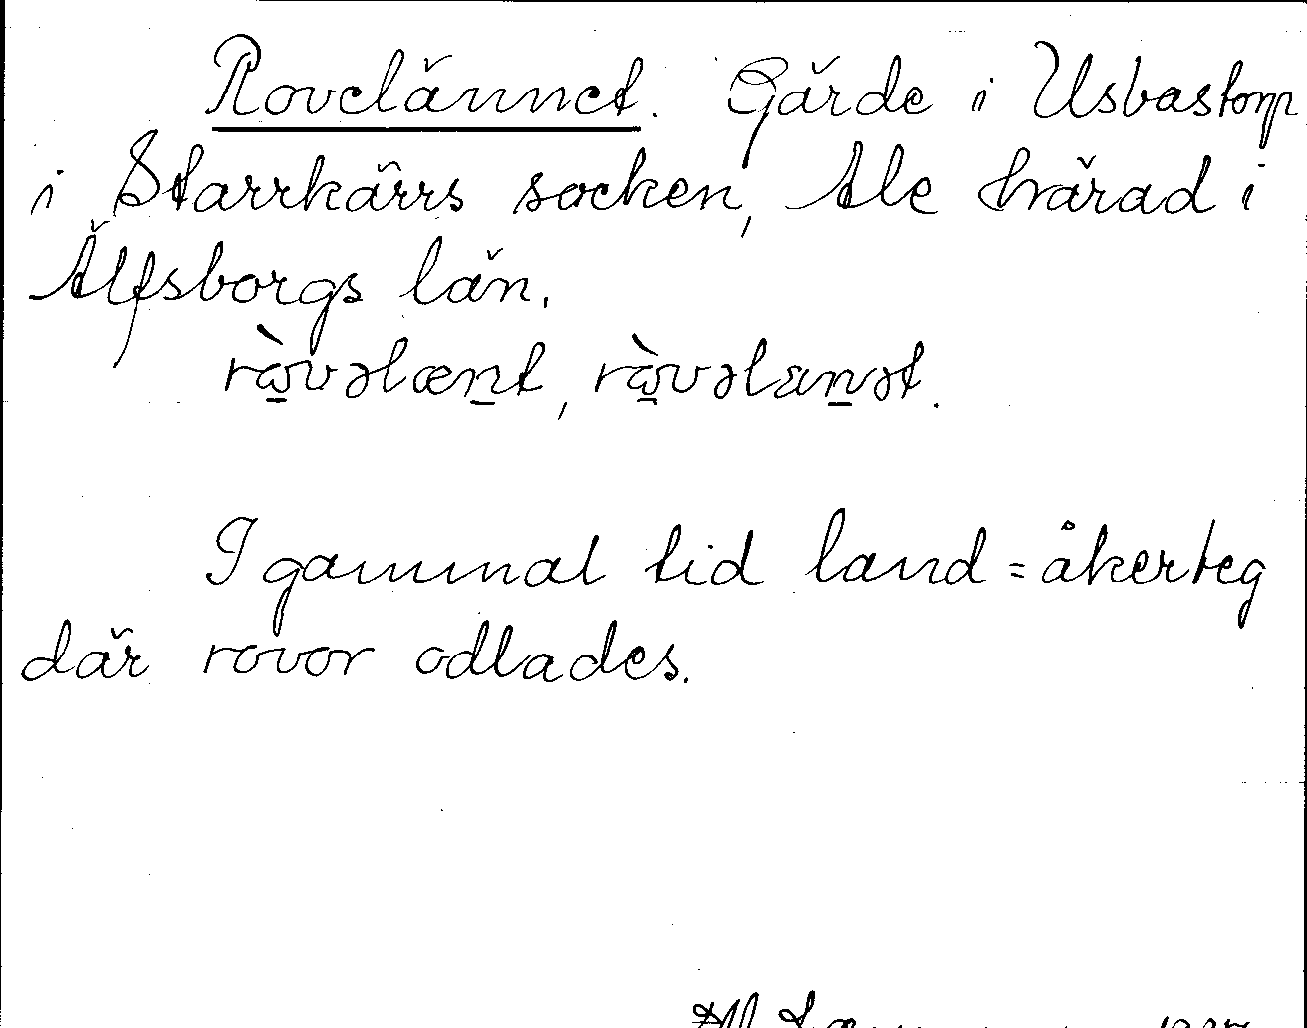 Rovelännet. Gärde i Usbastorp
i Starrkärrs socken, Ale härad i
Älfsborgs län.
rə̀vəlænt, rə̀vəlænət.
I gammal tid land = åkerteg
där rovor odlades.